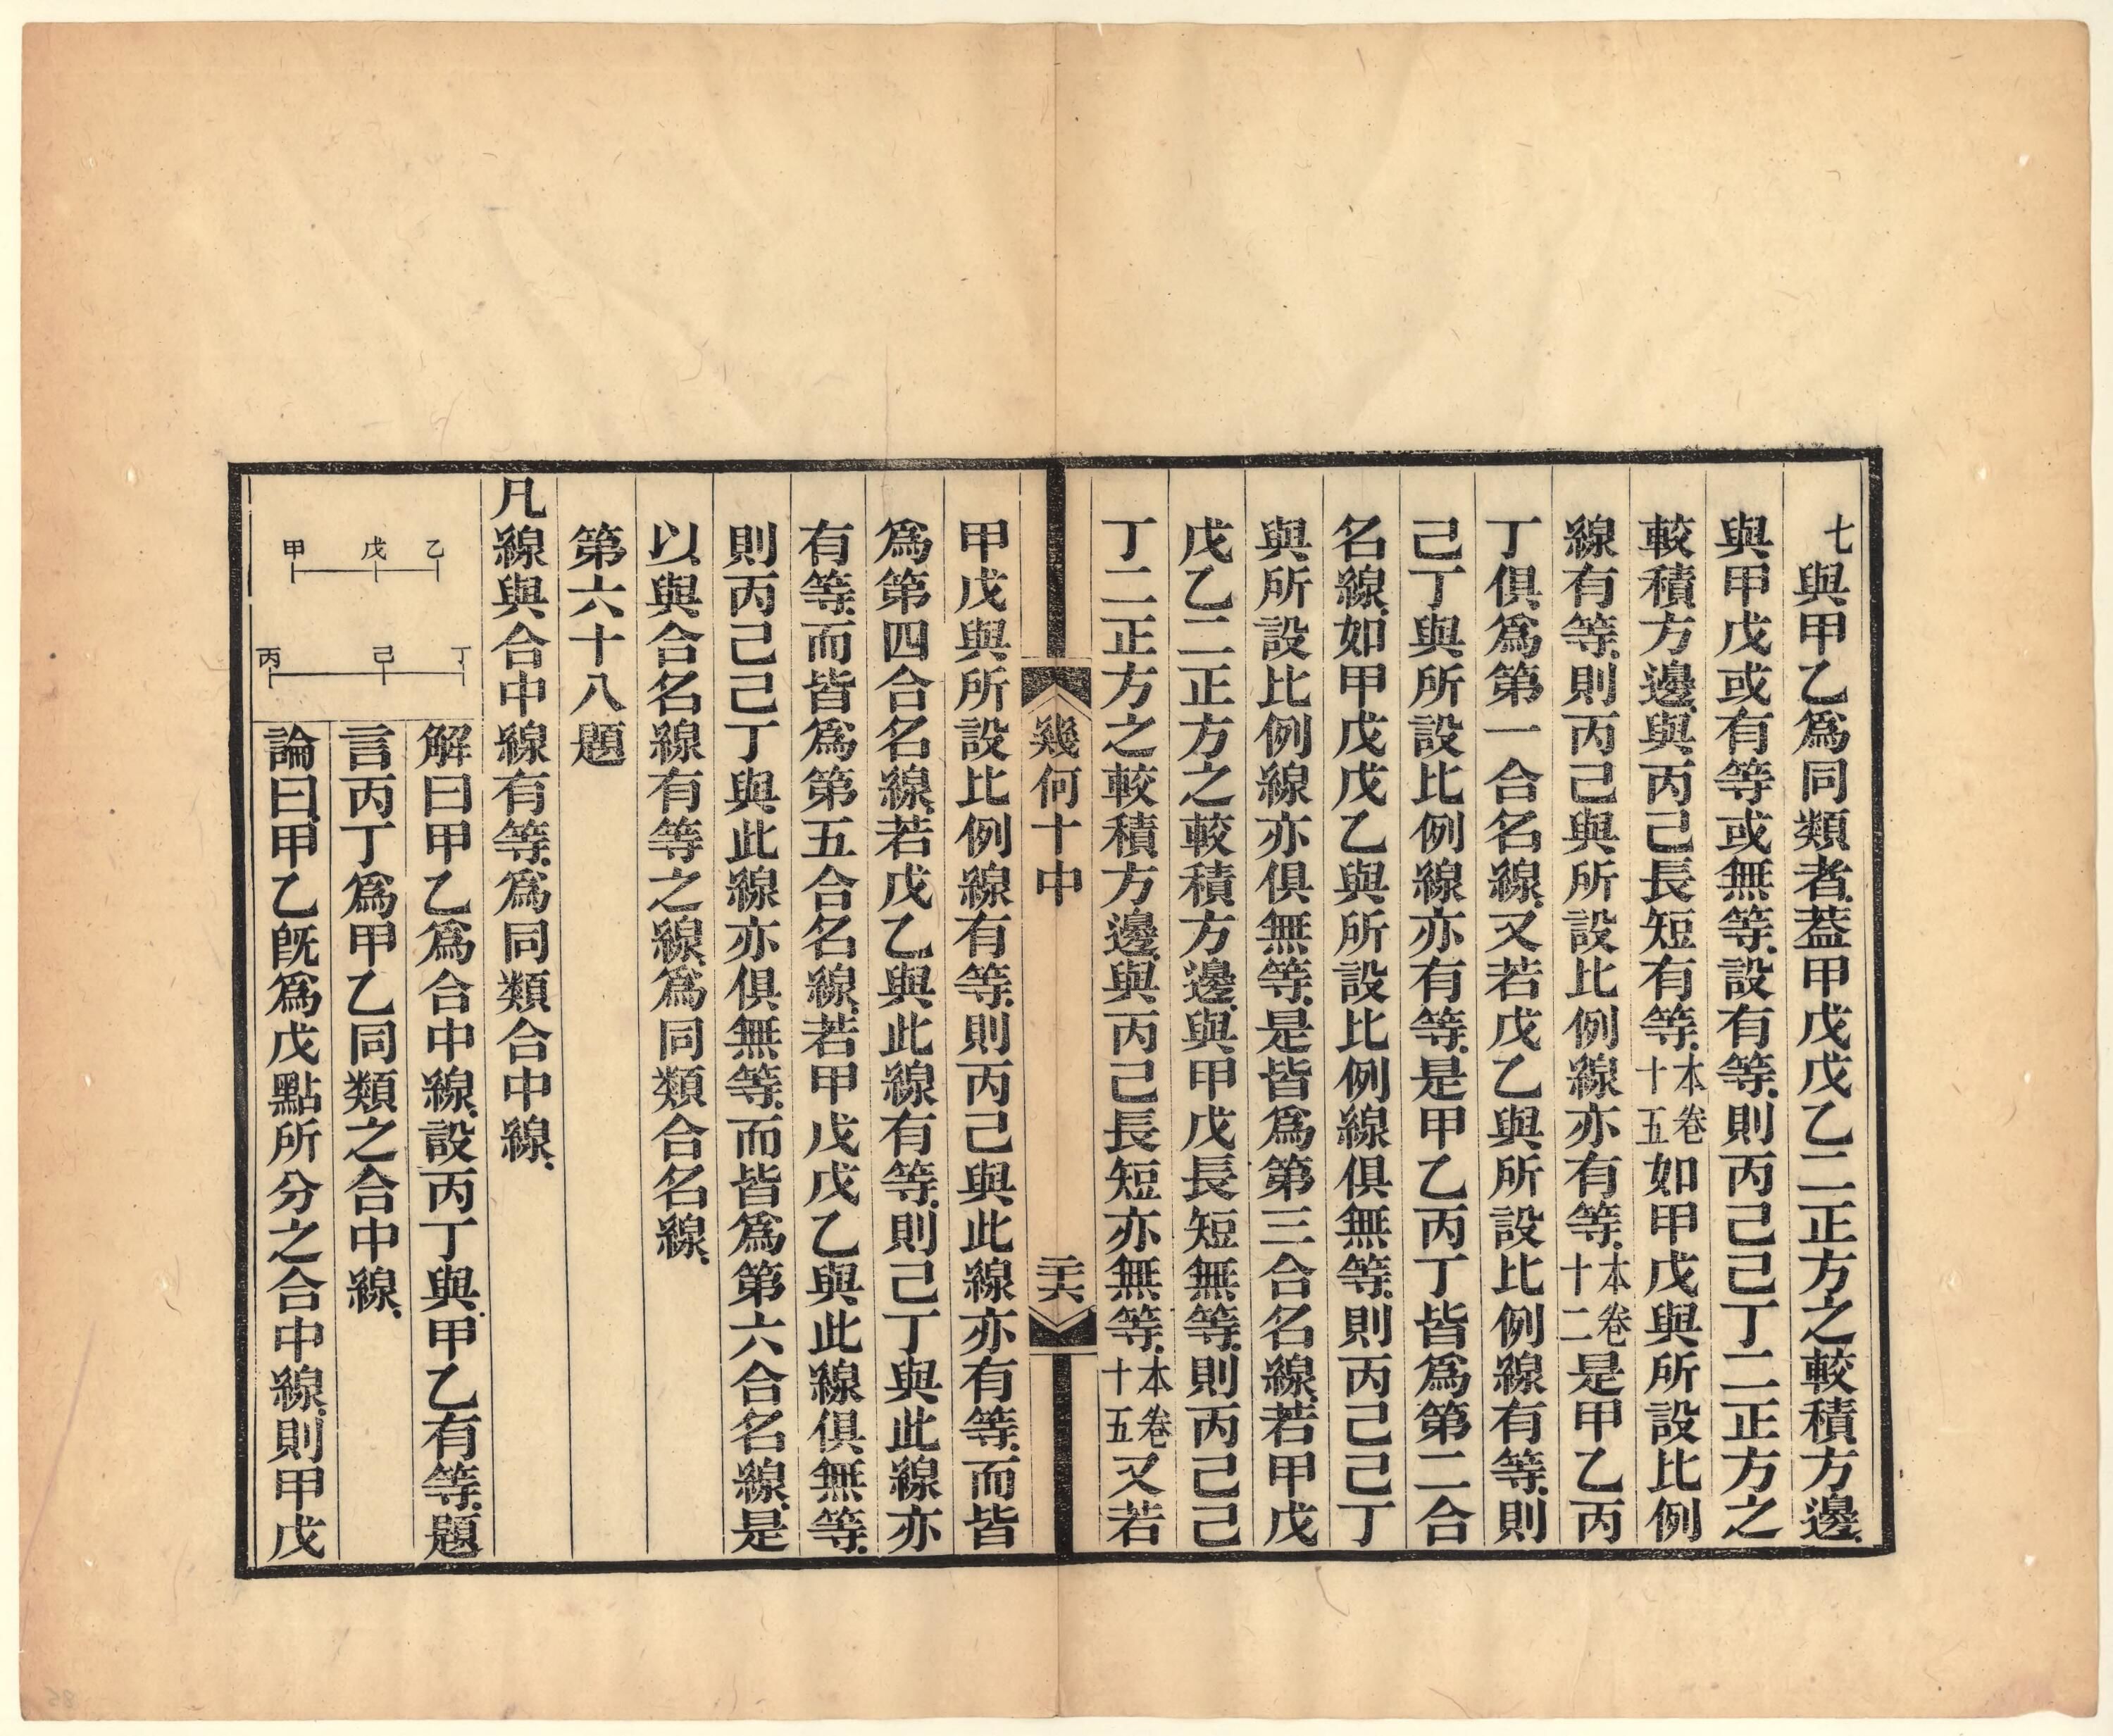 七與甲乙爲同類者蓋甲戊戊乙二正方之較積方邊
與甲戊或有等或無等設有等則丙己己丁二正方之
較積方邊與丙己長短有等本卷十五如甲戊與所設比例
線有等則丙己與所設比例線亦有等本卷十二是甲乙丙
丁俱爲第一合名線又若戊乙與所設比例線有等則
己丁與所設比例線亦有等是甲乙丙丁皆爲第二合
名線如甲戊戊乙與所設比例線俱無等則丙己己丁
與所設比例線亦俱無等是皆爲第三合名線若甲戊
戊乙二正方之較積方邊與甲戊長短無等則丙己己
丁二正方之較積方邊與丙己長短亦無等本卷十五又若
幾何十中
二六
甲戊與所設比例線有等則丙己與此線亦有等而皆
爲第四合名線若戊乙與此線有等則己丁與此線亦
有等而皆爲第五合名線若甲戊戊乙與此線俱無等
則丙己己丁與此線亦俱無等而皆爲第六合名線是
以與合名線有等之線爲同類合名線
第六十八題
凡線與合中線有等爲同類合中線
解曰甲乙爲合中線設丙丁與甲乙有等題
言丙丁爲甲乙同類之合中線
論曰甲乙旣爲戊點所分之合中線則甲戊
乙
戊
甲
丁
己
丙